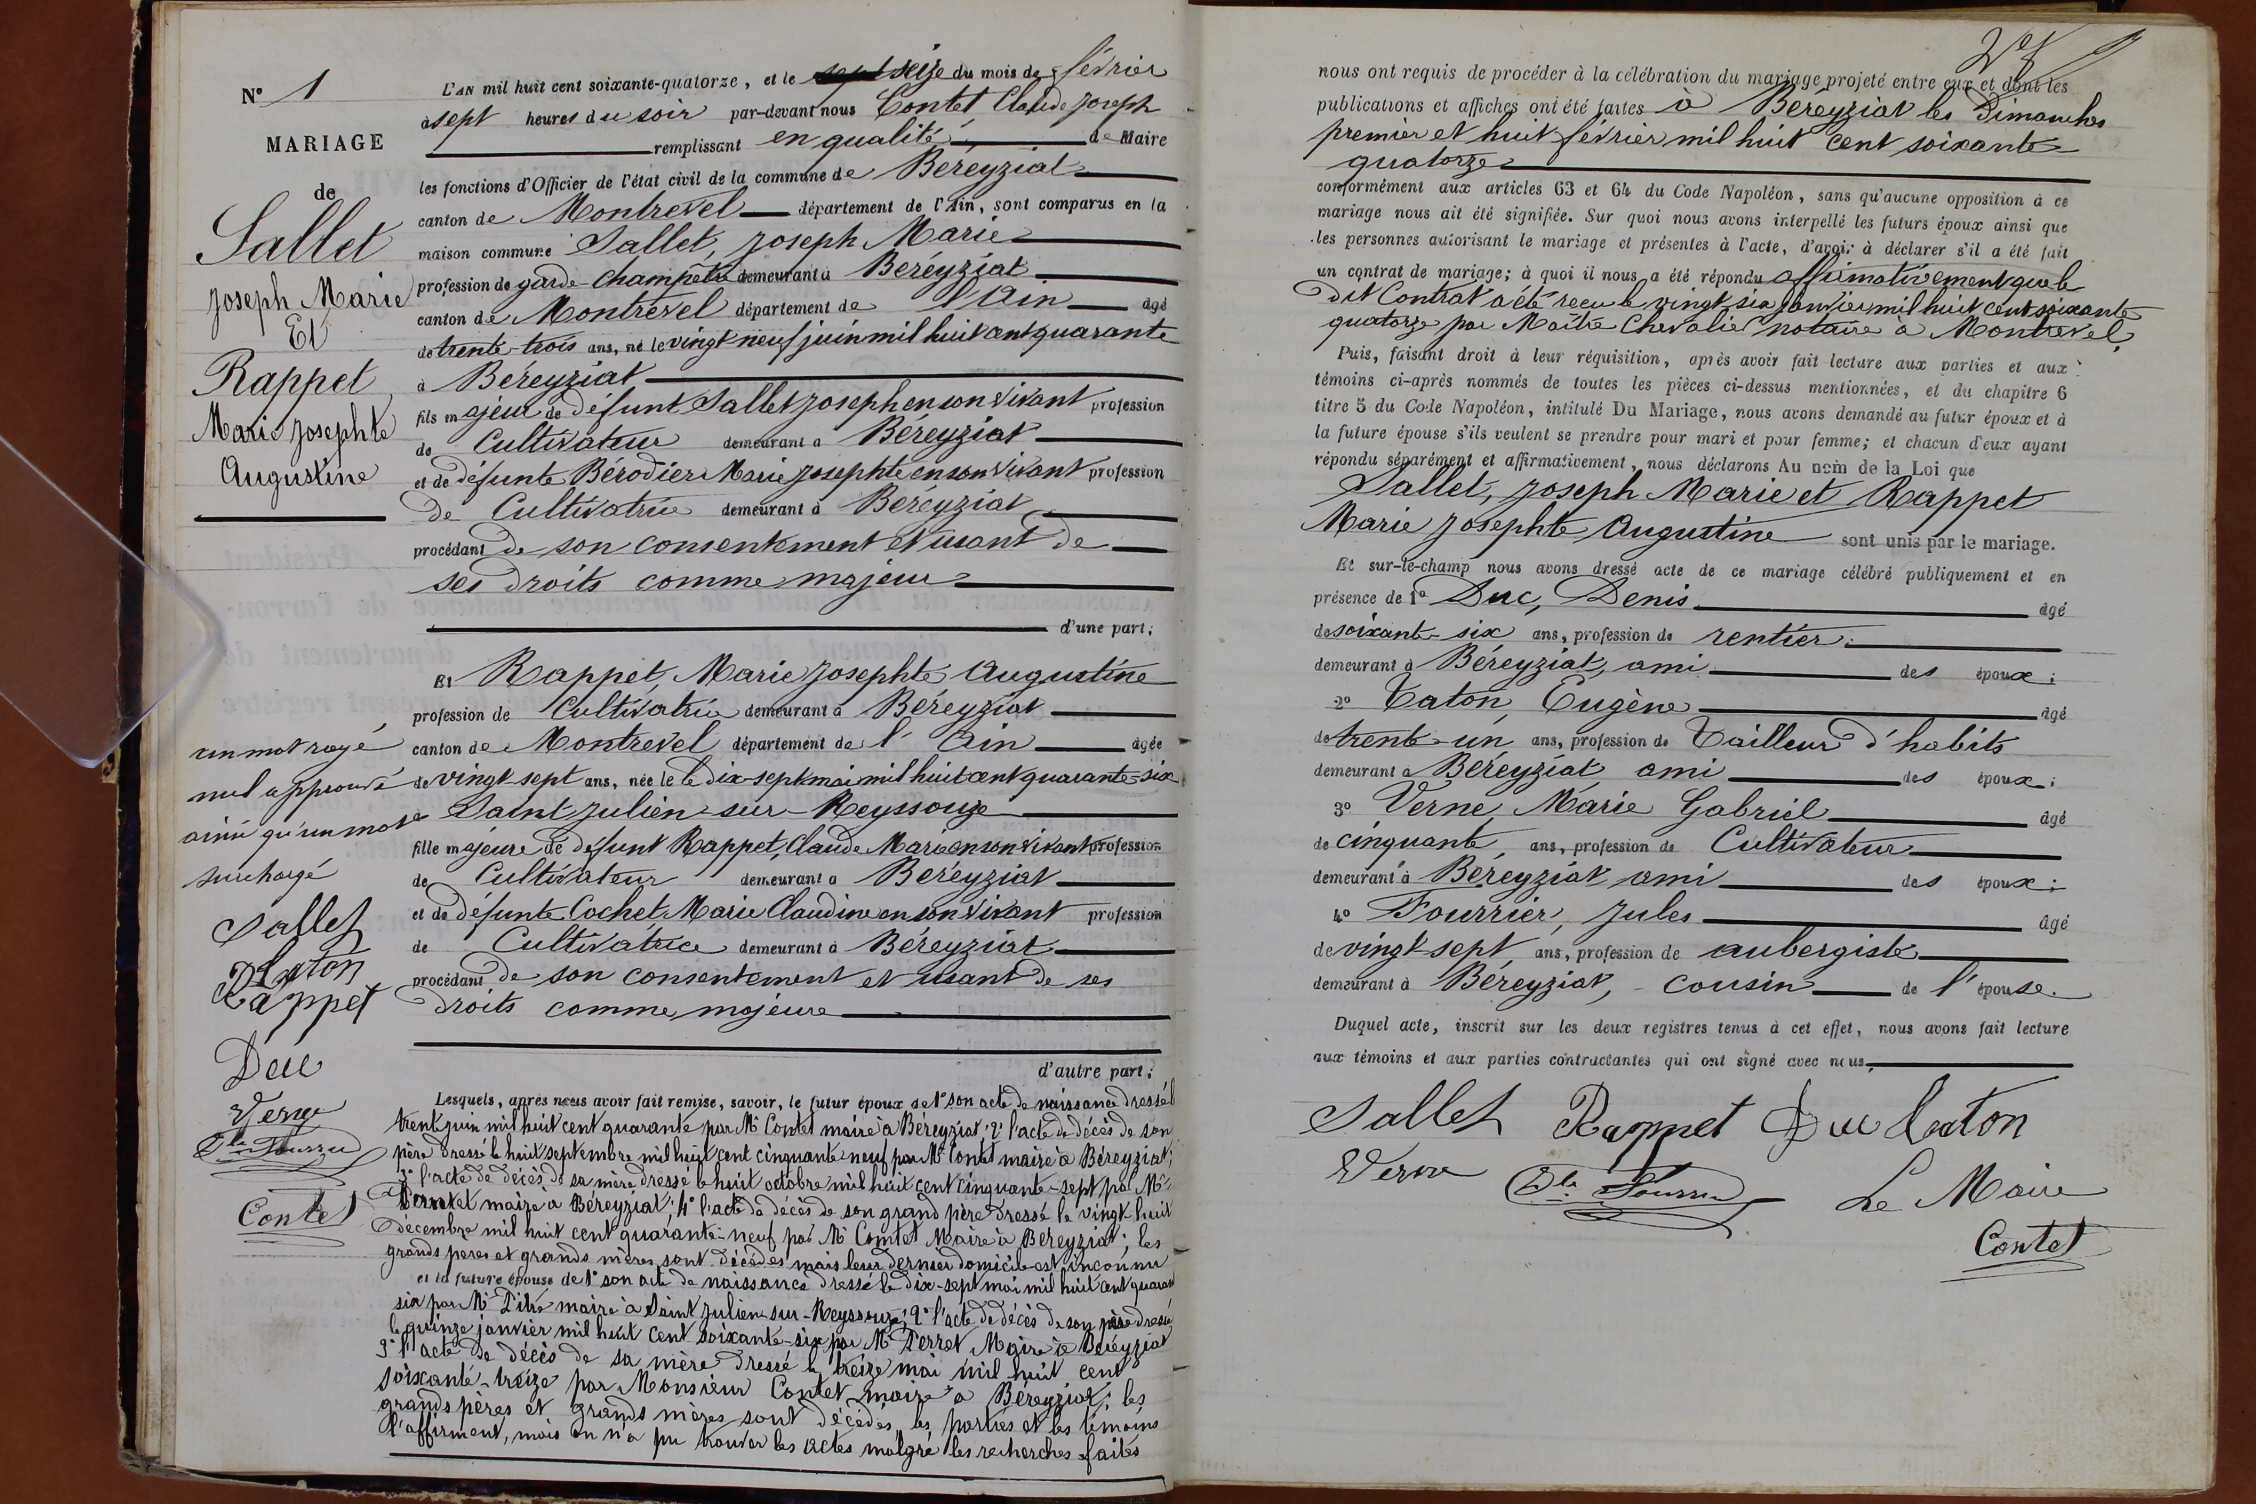 N° 1
MARIAGE
de
Sallet
Joseph Marie
Et
Rappet
Marie Josephte
Augustine
un mot rayé
nul approuvé
ainsi qu'un mot
surchargé
Sallet
Taton
Rappet
Duc
Verne
Contet
L'AN mil huit cent soixante-quatorze, et le seize du mois de février
à sept heures du soir par-devant nous Contet Claude Joseph
remplissant en qualité de Maire
les fonctions d'Officier de l'état civil de la commune de Béreyziat
canton de Montrevel département de l'Ain, sont comparus en la
maison commune Sallet, Joseph Marie
profession de garde-champêtre demeurant à Béreyziat
canton de Montrevel département de l'Ain âgé
de trente-trois ans, né le vingt-neuf juin mil huit cent quarante
à Béreyziat
fils majeur de défunt Sallet Joseph en son vivant profession
de Cultivateur demeurant à Béreyziat
et de défunte Bérodier Marie Josephte en son vivant profession
de Cultivatrice demeurant à Béreyziat
procédant de son consentement et usant de
ses droits comme majeur
d'une part;
Et Rappet, Marie Josephte Augustine
profession de Cultivatrice demeurant à Béreyziat
canton de Montrevel département de l'Ain âgée
de vingt-sept ans, née le le dix-sept mai mil huit cent quarante-six
à Saint Julien-sur-Reyssouze
fille majeure de défunt Rappet, Claude Marie en son vivant profession
de Cultivateur demeurant à Béreyziat
et de défunte Cochet, Marie Claudine en son vivant profession
de Cultivatrice demeurant à Béreyziat
procédant de son consentement et usant de ses
droits comme majeure
d'autre part;
Lesquels, après nous avoir fait remise, savoir, le futur époux de 1° son acte de naissance dressé le
trente juin mil huit cent quarante par Mr Contet maire à Béreyziat; 2° l'acte de décès de son
père dressé le huit septembre mil huit cent cinquante neuf par Mr Contet maire à Béreyziat;
3° l'acte de décès de sa mère dressé le huit octobre mil huit cent cinquante-sept par Mr
Contet maire à Béreyziat; 4° l'acte de décès de son grand père dressé le vingt-huit
décembre mil huit cent quarante-neuf par Mr Contet Maire à Béreyziat; les
grands pères et grands mères sont décédés mais leur dernier domicile est inconnu
et la future épouse de 1° son acte de naissance dressé le dix-sept mai mil huit cent quarante
six par Mr Pitre maire à Saint Julien-sur-Reyssouze; 2° l'acte de décès de son père dressé
le quinze janvier mil huit cent soixante-six par Mr Perret, Maire à Béreyziat
3° l'acte de décès de sa mère dressé le treize mai mil huit cent
soixante-treize par Monsieur Contet maire à Béreyziat; les
grands pères et grands mères sont décédés, les parties et les témoins
l'affirment, mais on n'a pu trouver les actes malgré les recherches faites
nous ont requis de procéder à la célébration du mariage projeté entre eux et dont les
publications et affiches ont été faites à Béreyziat les Dimanches
premier et huit février mil huit cent soixante
quatorze
conformément aux articles 63 et 64 du Code Napoléon, sans qu'aucune opposition à ce
mariage nous ait été signifiée. Sur quoi nous avons interpellé les futurs époux ainsi que
les personnes autorisant le mariage et présentes à l'acte, d'avoir à déclarer s'il a été fait
un contrat de mariage; à quoi il nous a été répondu affirmativement que le
dit Contrat a été reçu le vingt six janvier mil huit cent soixante
quatorze par Maître Chevalier notaire à Montrevel.
Puis, faisant droit à leur réquisition, après avoir fait lecture aux parties et aux
témoins ci-après nommés de toutes les pièces ci-dessus mentionnées, et du chapitre 6
titre 5 du Code Napoléon, intitulé Du Mariage, nous avons demandé au futur époux et à
la future épouse s'ils veulent se prendre pour mari et pour femme; et chacun d'eux ayant
répondu séparément et affirmativement, nous déclarons Au nom de la Loi que
Sallet, Joseph Marie et Rappet
Marie Josephte Augustine sont unis par le mariage.
Et sur-le-champ nous avons dressé acte de ce mariage célébré publiquement et en
présence de 1° Duc, Denis âgé
de soixante-six ans, profession de rentier
demeurant à Béreyziat, ami des époux;
2° Taton, Eugène âgé
de trente-un ans, profession de Tailleur d'habits
demeurant à Béreyziat ami des époux;
3° Verne, Marie Gabriel âgé
de cinquante, ans, profession de Cultivateur
demeurant à Béreyziat ami des époux;
4° Fourrier, Jules âgé
de vingt-sept ans, profession de aubergiste
demeurant à Béreyziat, cousin de l'épouse.
Duquel acte, inscrit sur les deux registres tenus à cet effet, nous avons fait lecture
aux témoins et aux parties contractantes qui ont signé avec nous
Sallet Rappet Duc Taton
Verne
Le Maire
Contet